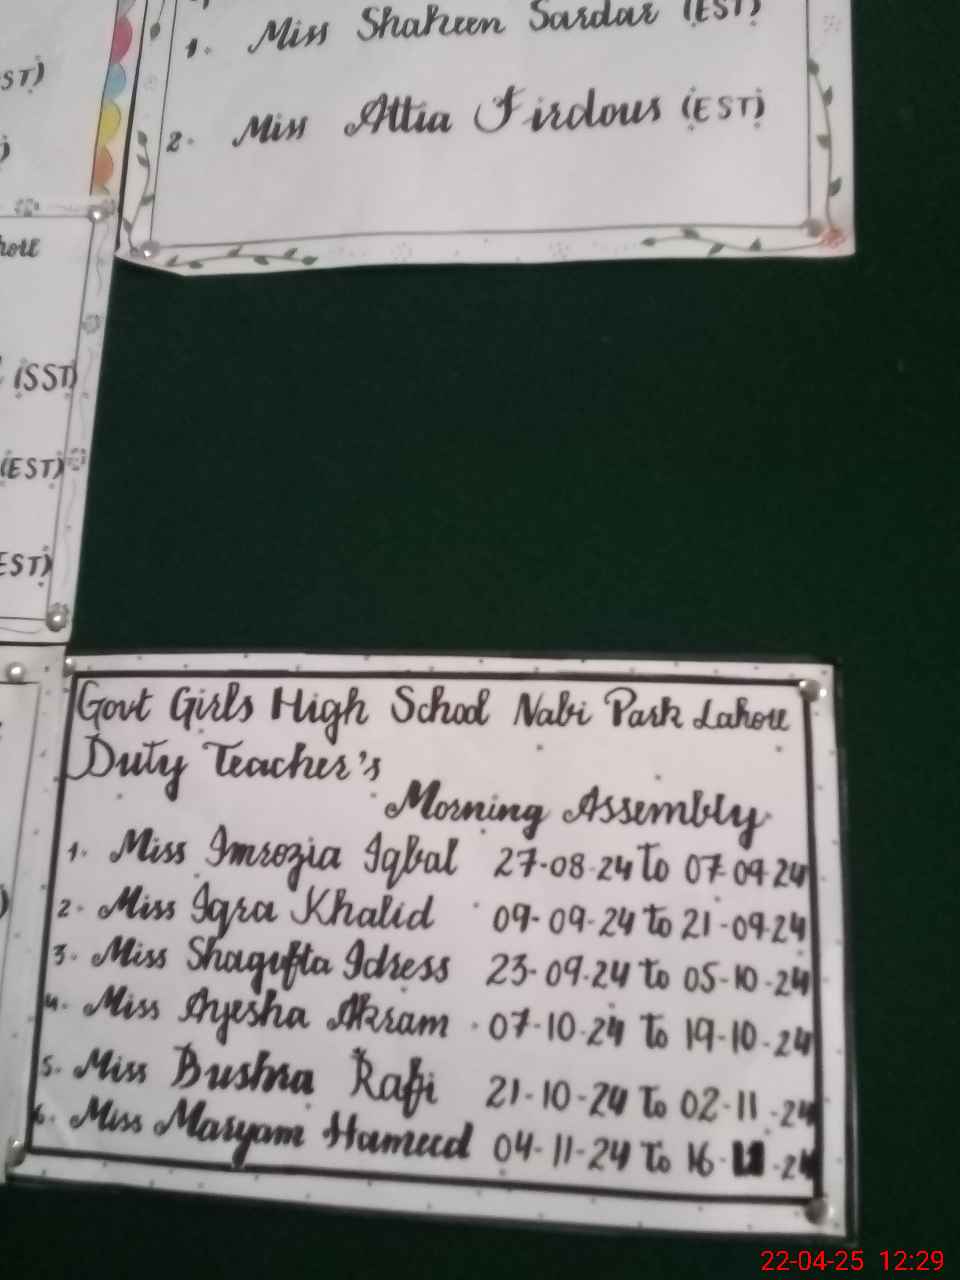 1. Miss Shaheen Sardar (EST)
2. Miss Attia Firdous (EST)
ST)
)
hore
(SST)
(EST)
EST)
)
Govt Girls High School Nabi Park Lahore
Duty Teacher's
Morning Assembly
1. Miss Imrozia Iqbal 27-08-24 to 07-09-24
2. Miss Iqra Khalid 09-09-24 to 21-09-24
3. Miss Shagufta Idress 23-09-24 to 05-10-24
4. Miss Ayesha Akram 07-10-24 to 19-10-24
5. Miss Bushra Rafi 21-10-24 to 02-11-24
6. Miss Maryam Hameed 04-11-24 to 16-11-24
22-04-25 12:29